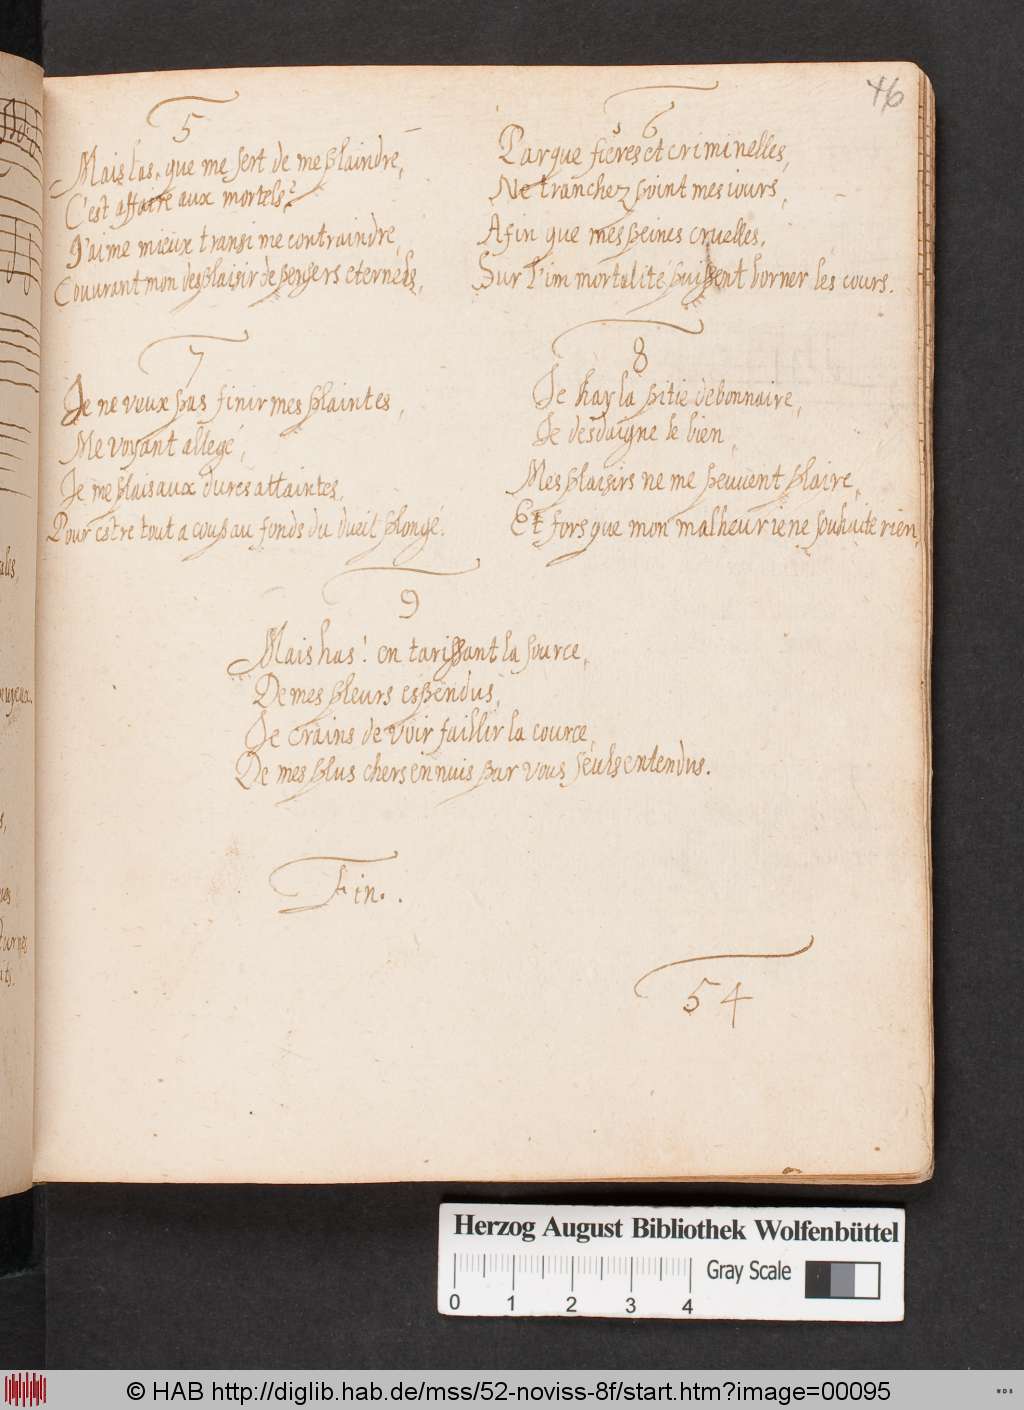 46
5
Mais las, que me sert de me plaindre,
C'est affaire aux mortels?
J'aime mieux transi me contraindre,
Couurant mon desplaisir de pensers eternels,
6
Parque fieres et criminelles,
Ne tranchez point mes iours,
Afin que mes peines cruelles,
Sur l'immortalité puissent borner les cours.
7
Je ne veux pas finir mes plaintes,
Me voyant allegé,
Je me plais aux dures attaintes,
Pour estre tout a coup au fonds du dueil plongé.
8
Je hay la pitie debonnaire,
Je desdaigne le bien,
Mes plaisirs ne me peuuent plaire,
Et fors que mon malheur ie ne souhaite rien,
9
Mais has! en tarissant la source,
De mes pleurs espendus,
Je crains de voir faillir la cource,
De mes plus chers ennuis par vous seuls entendus.
Fin.
54
Herzog August Bibliothek Wolfenbüttel
Gray Scale
0 1 2 3 4
© HAB http://diglib.hab.de/mss/52-noviss-8f/start.htm?image=00095